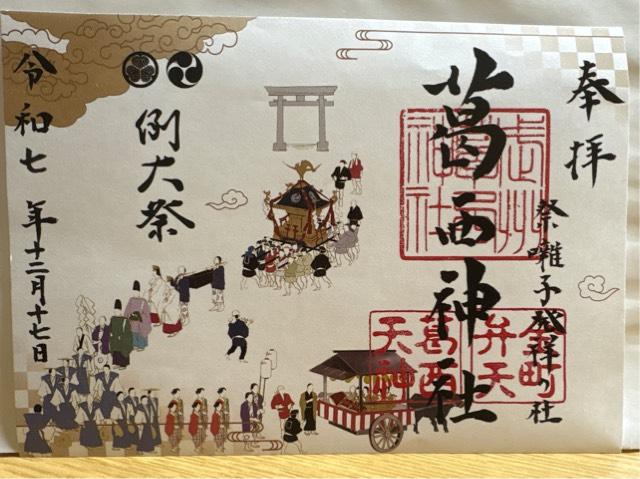 奉拝
祭囃子発祥の社
葛西神社
金町
弁天
葛西
天神
例大祭
令和七年十二月十七日